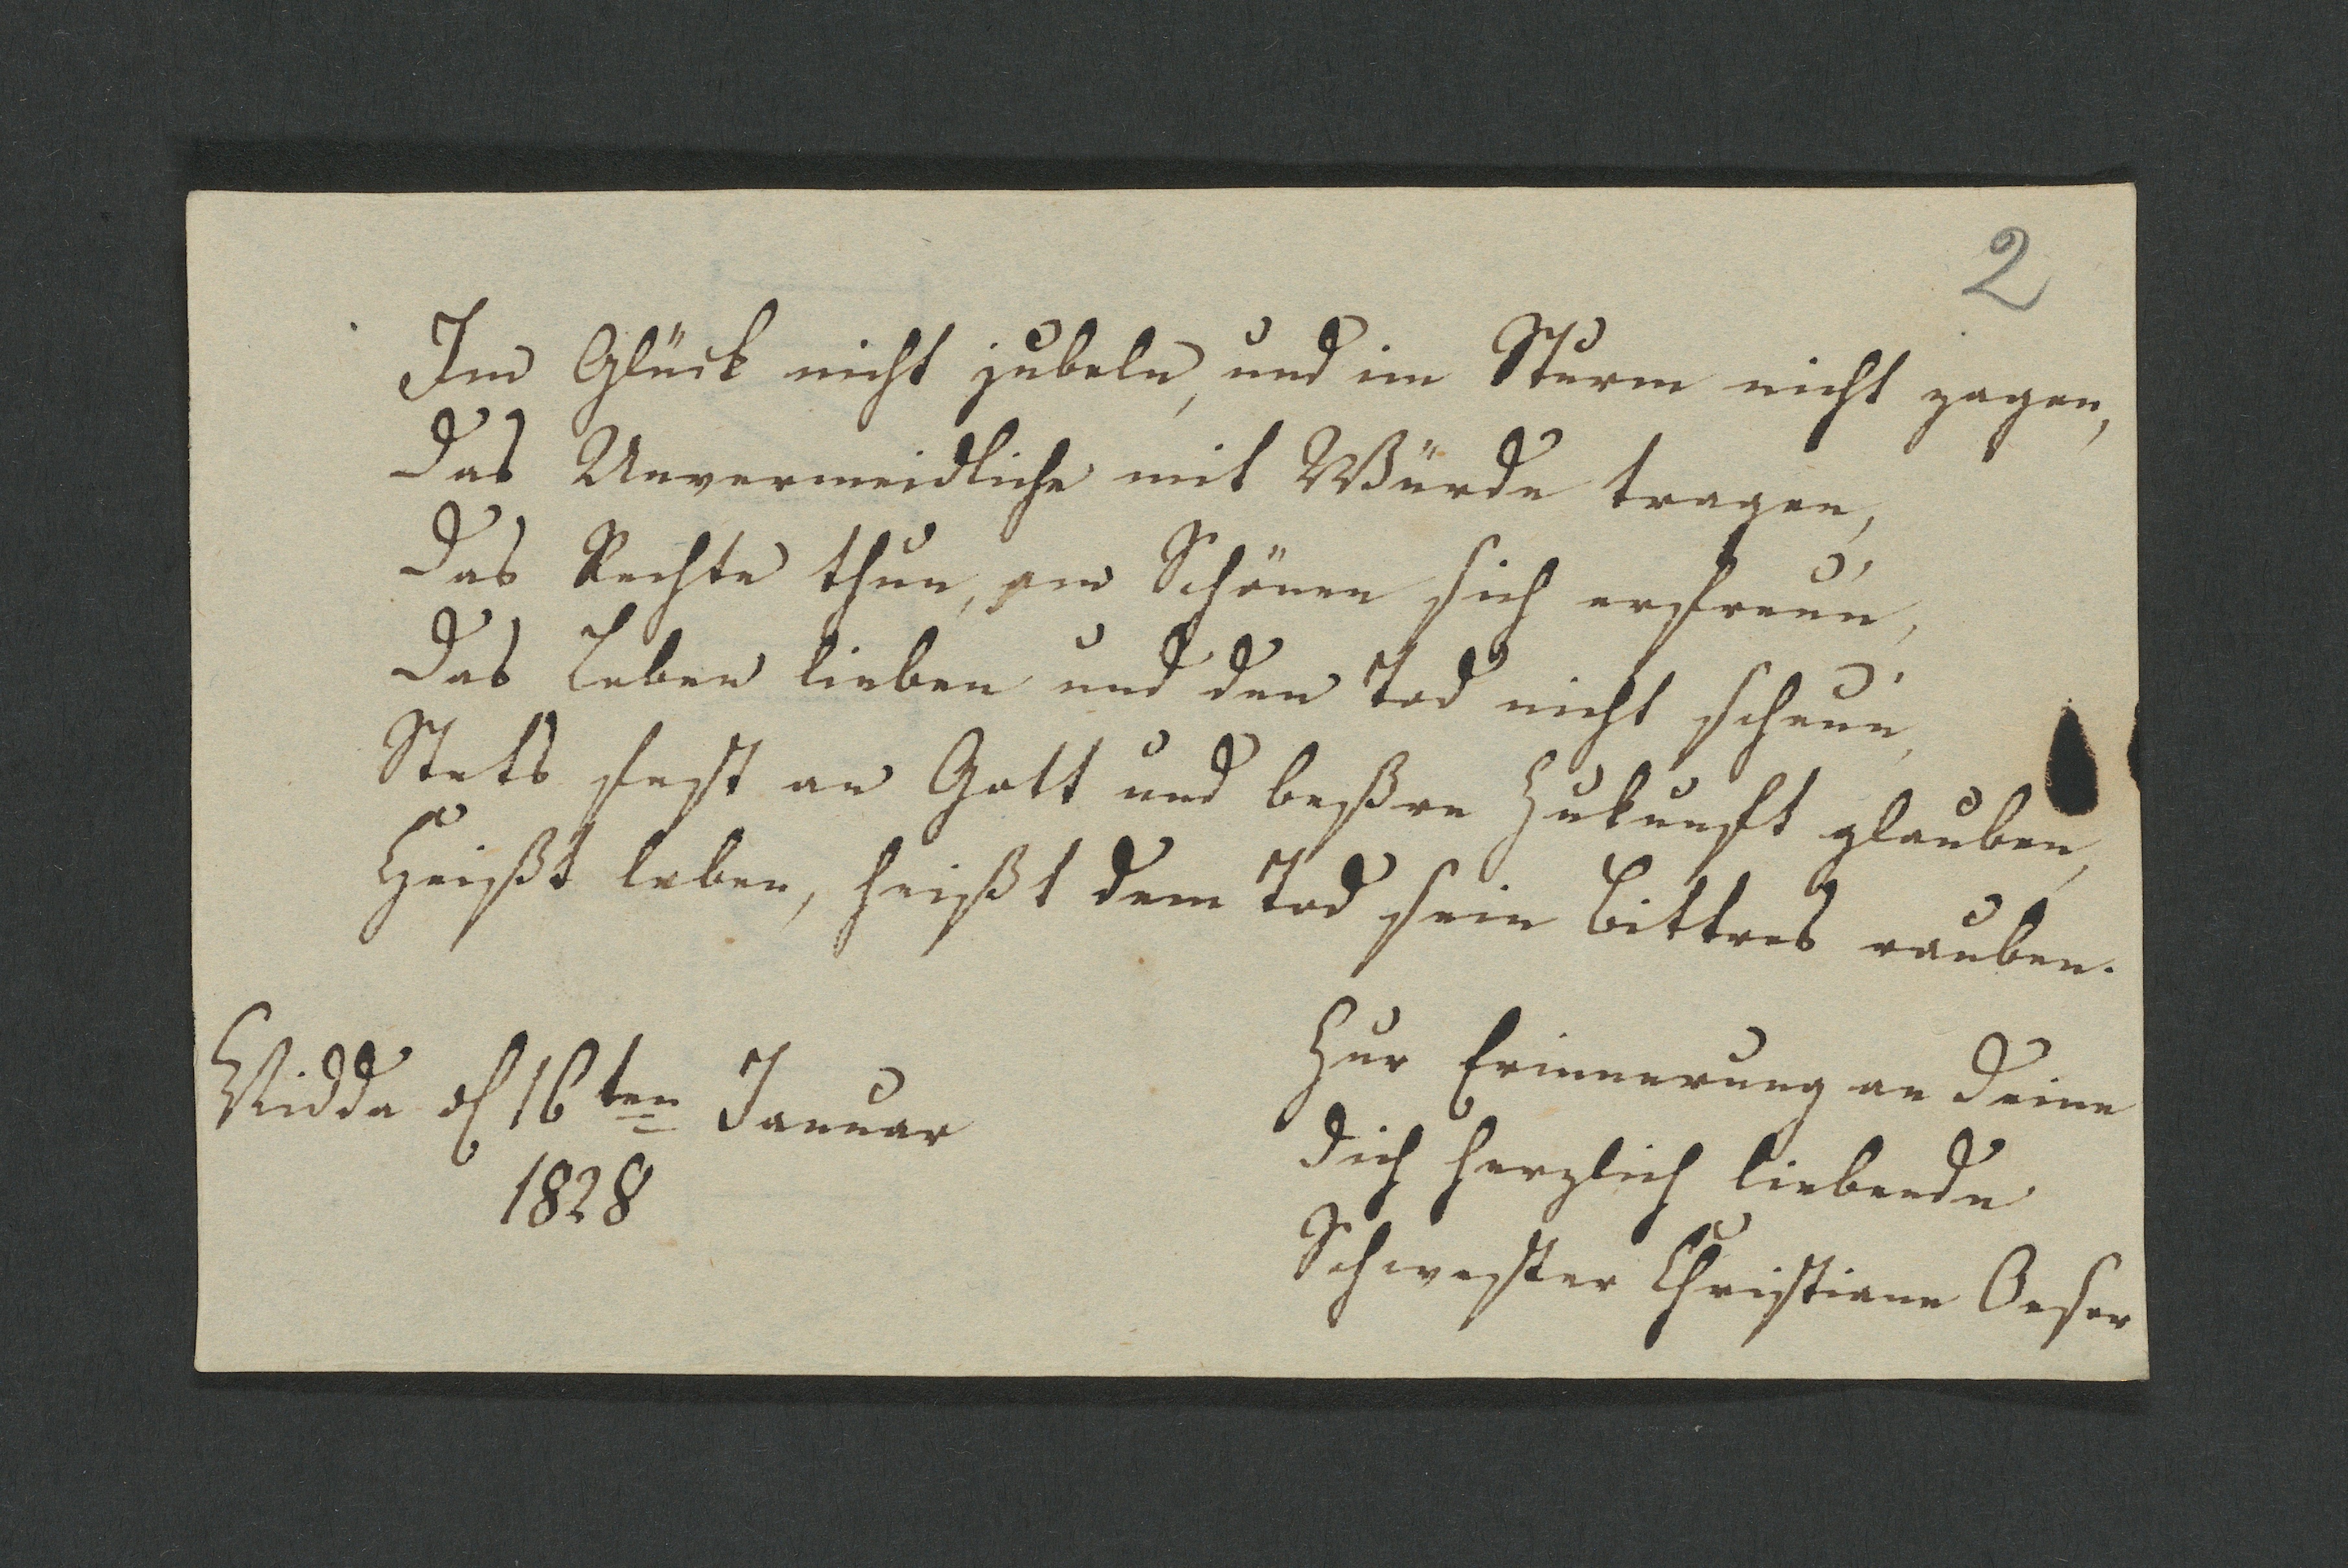 2
Im Glück nicht jubeln, und im Sturm nicht zagen,
Das Unvermeidliche mit Würde tragen,
Das Rechte thun, am Schönen sich erfreun',
Das Leben lieben und den Tod nicht scheun',
Stets fest an Gott und beßre Zukunft glauben,
Heißt leben, heißt dem Tod sein Bittres rauben.
Nidda d 16ten Januar
1828
Zur Erinnerung an Deine
Dich herzlich liebende
Schwester Christiane Oeser